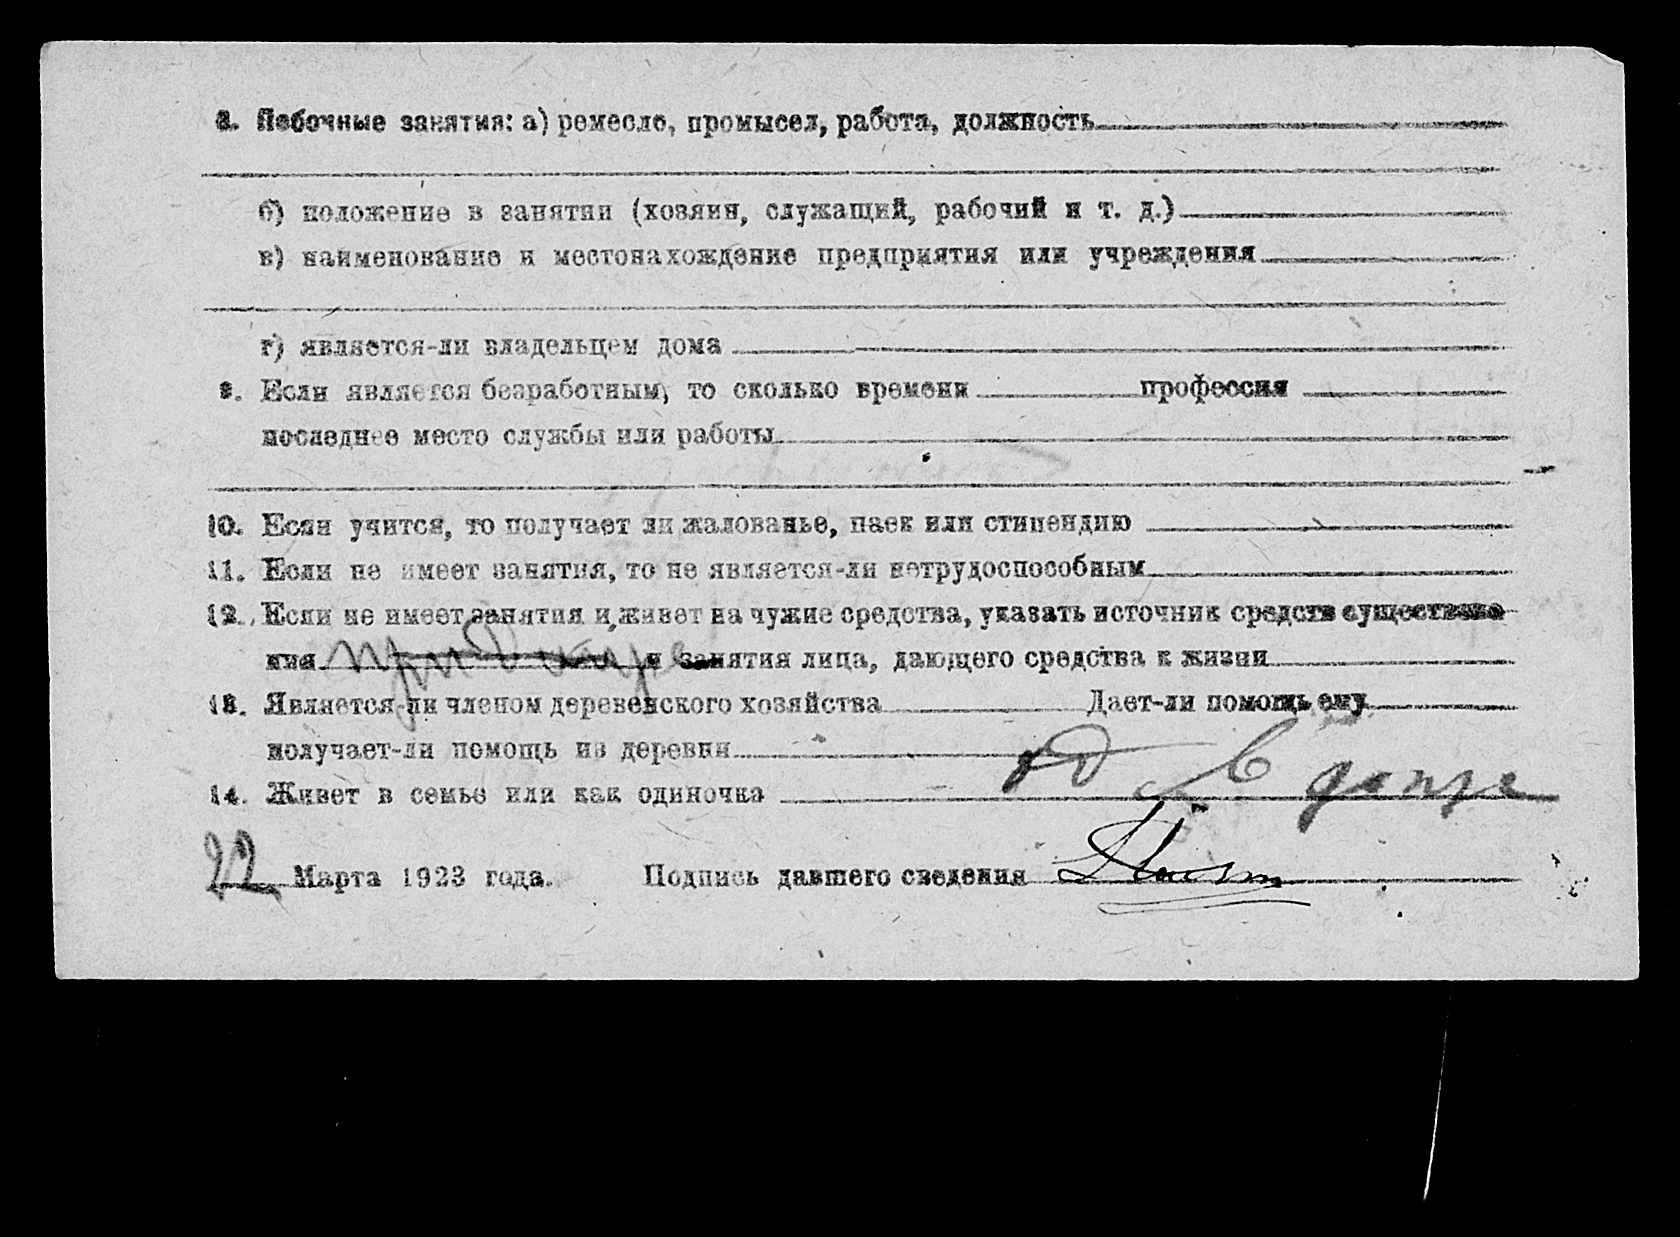 8. Побочные занятия: а) ремесло, промысел, работа, должность
б) положение в занятии (хозяин, служащий, рабочий и т. д.)
в) наименование и местонахождение предприятия или учреждения
г) является-ли владельцем дома
9. Если является безработным, то сколько времени профессия
последнее место службы или работы
10. Если учится, то получает ли жалованье, паек или стипендию
11. Если не имеет занятия, то не является-ли нетрудоспособным
12. Если не имеет занятия и живет на чужие средства, указать источник средств существова
ния при и занятия лица, дающего средства к жизни
13. Является-ли членом деревенского хозяйства Дает-ли помощь ему
получает-ли помощь из деревни
14. Живет в семье или как одиночка
22 Марта 1923 года. Подпись давшего сведения